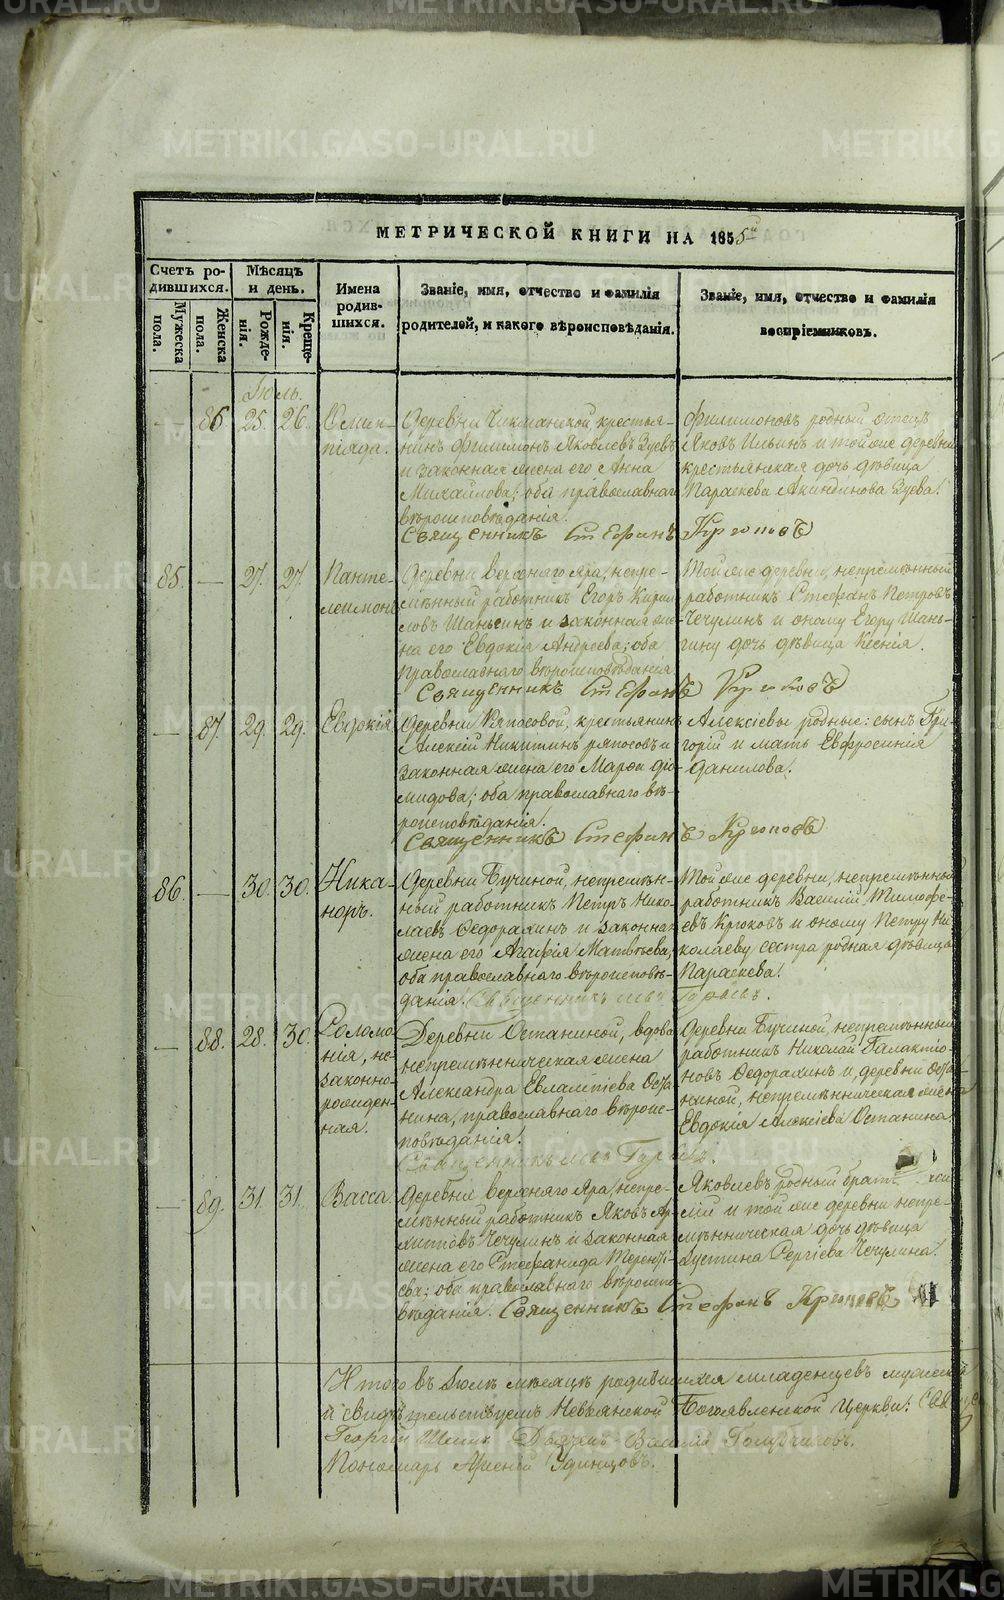 METRIKI.GASO-URAL.RU
МЕТРИЧЕСКОЙ КНИГИ НА 1855й
Счетъ ро-
дившихся.
Мужеска пола.
Женска пола.
Мѣсяцъ
и день.
Рожде-
нія.
Креще-
нія.
Имена
родив-
шихся.
Званіе, имя, отчество и фамилія
родителей, и какого вѣроисповѣданія.
Званіе, имя, отчество и фамилія
воспріемниковъ.
Іюль.
— 86 25. 26. Олим-
піяда.
Деревни Чикманской крестья-
нинъ Филимонъ Яковлевъ Зуевъ
и законная жена его Анна
Михайлова; оба православнаго
вѣроисповѣданія.
Филимоновъ родный отецъ
Яковъ Ильинъ и той же деревни
крестьянская дочь дѣвица
Параскева Акиндинова Зуева.
Священникъ Стефанъ
85. — 27. 27. Панте-
леимонъ
Деревни верхняго Яра, непре-
мѣнный работникъ Егоръ Кирил-
ловъ Шаньгинъ и законная же-
на его Евдокія Андреева; оба
православнаго вѣроисповѣданія
Той же деревни, непремѣнный
работникъ Стефанъ Петровъ
Чечулинъ и оному Егору Шань-
гину дочь дѣвица Ксенія.
Священникъ Стефанъ
— 87. 29. 29. Евдокія
Деревни Ряпосовой, крестьянинъ
Алексій Никитинъ ряпосовъ и
законная жена его Марѳа
мидова; оба православнаго вѣ-
роисповѣданія.
Алексіевы родные: сынъ Гри-
горій и мать Евфросинія
Данилова.
Священникъ Стефанъ
86. — 30. 30. Ника-
норъ.
Деревни Бучиной, непремѣн-
ный работникъ Петръ Нико-
лаевъ Ѳедорахинъ и законная
жена его Агафія Матвѣева,
оба православнаго вѣроисповѣ-
данія. Священникъ
Той же деревни, непремѣнной
работникъ Василій Тимофе-
евъ Крюковъ и оному Петру Ни-
колаеву сестра родная дѣвица
Параскева.
— 88. 28. 30. Соломо-
нія, не-
законно-
рожден-
ная.
Деревни Останиной, вдова
непремѣнническая жена
Александра Евлампіева Оста-
нина, православнаго вѣроис-
повѣданія.
Священникъ
Деревни Бучиной, непремѣнный
работникъ Николай Галактіо-
новъ Ѳедорахинъ и деревни Оста-
ниной, непремѣнническая жена
Евдокія Алексіева Останина.
— 89. 31. 31. Васса.
Деревни верхняго Яра, непре-
мѣнный работникъ Яковъ Ар-
хиповъ Чечулинъ и законная
жена его Стефанида Терентіе-
ва; оба православнаго вѣроиспо-
вѣданія. Священникъ Стефанъ
Яковлевъ родный братъ
и той же деревни непре-
мѣнническая дочь дѣвица
Іустина Сергіева Чечулина.
Итого въ Іюлѣ мѣсяцѣ родившихся младенцевъ мужеска
и свидѣтельствуемъ Невьянской Богоявленской Церкви:
Георгій Дьячекъ Василій
Пономарь Удинцовъ.